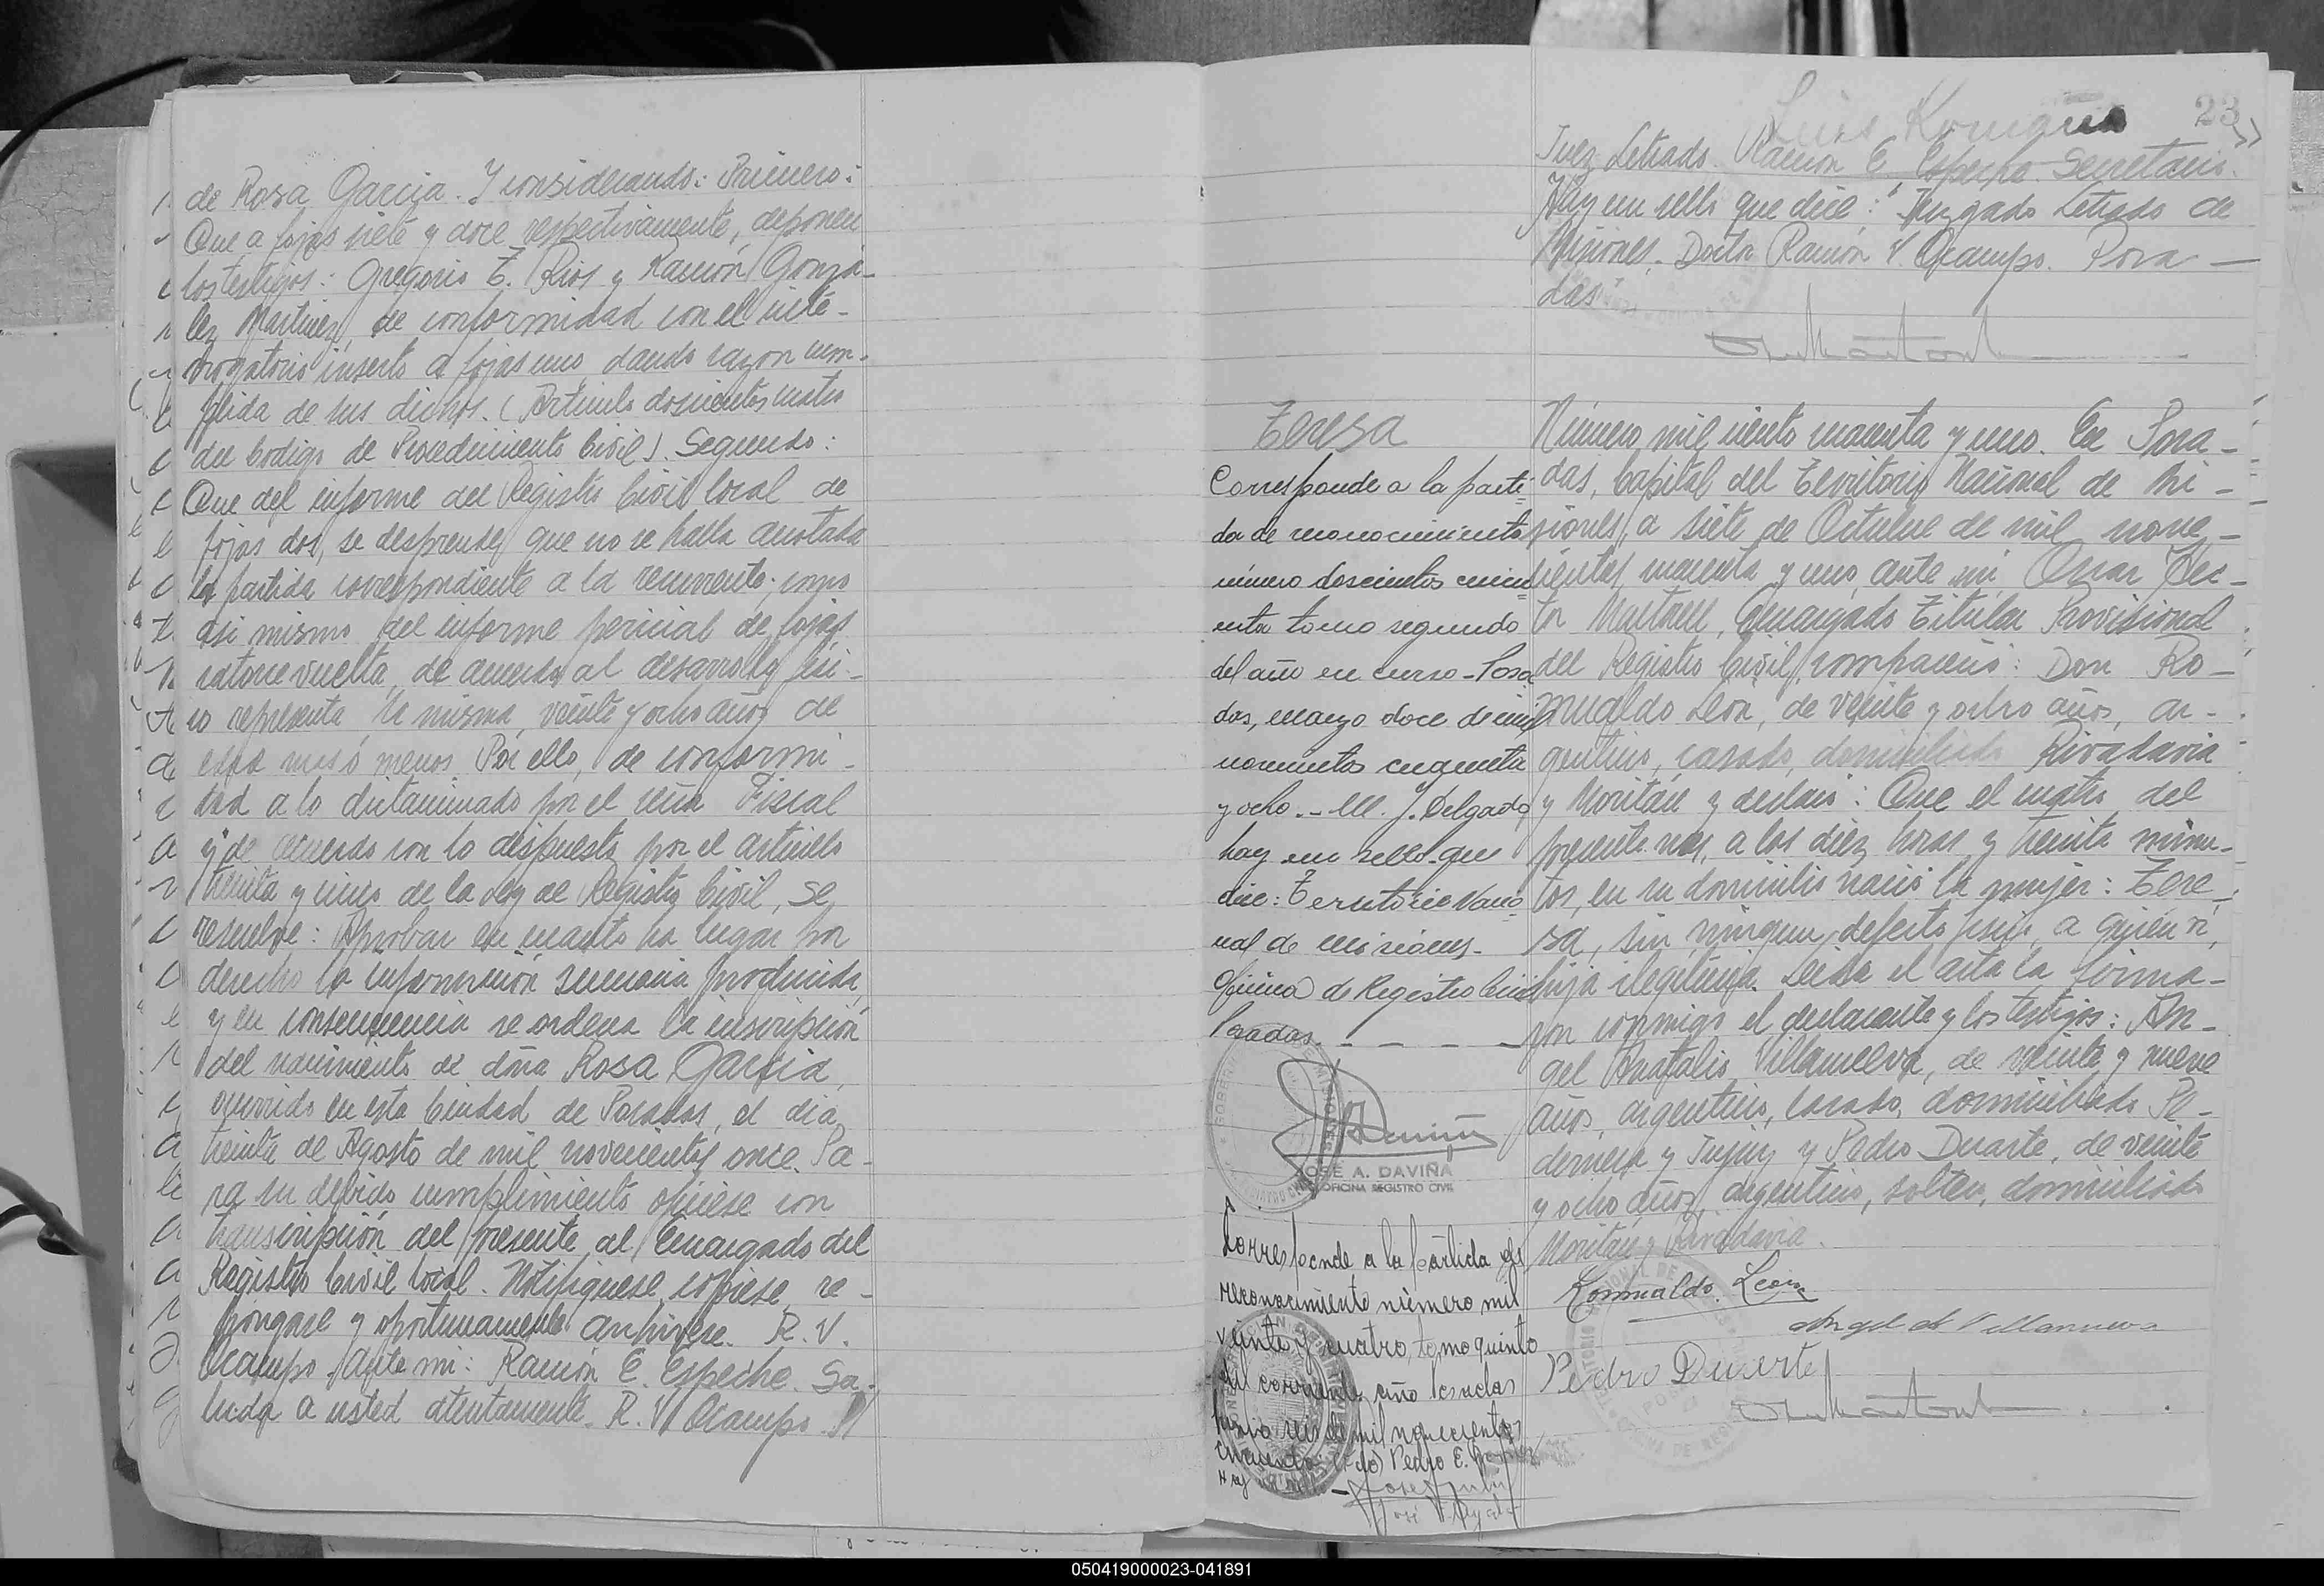 de Rosa Garcia. Y considerando: Primero:
Que a fojas siete y doce respectivamente, deponen
los testigos: Gregorio E. Rios y Ramón Gonzá-
lez Martinez, de conformidad con el inte-
rrogatorio inserto a fojas uno, dando razon cum-
plida de sus dichos. (Artículo doscientos cuatro
del Codigo de Procedimiento Civil). Segundo:
Que del informe del Registro Civil local de
fojas dos, se desprende que no se halla anotada
la partida correspondiente a la recurrente; como
asi mismo del informe pericial de fojas
catorce vuelta, de acuerdo al desarrollo fisi-
co representa la misma, veinte y ocho años de
edad mas ó menos. Por ello, de conformi-
dad a lo dictaminado por el señor Fiscal
y de acuerdo con lo dispuesto por el artículo
treinta y cinco de la ley de Registro Civil, se
resuelve: Aprobar en cuanto ha lugar por
derecho la información sumaria producida,
y en consecuencia se ordena la inscripción
del nacimiento de doña Rosa Garcia,
ocurrido en esta Ciudad de Posadas, el dia
treinta de Agosto de mil novecientos once. Pa-
ra su debido cumplimiento ofíciese con
transcripción del presente al Encargado del
Registro Civil local. Notifíquese, cópiese, re-
póngase y oportunamente archívese. R. V.
Ocampo. Ante mi: Ramón E. Espeche. Sa-
luda a usted atentamente. R. V. Ocampo.
23
Juez Letrado. Ramón E. Espeche. Secretario.
Hay un sello que dice: "Juzgado Letrado de
Misiones. Doctor Ramón V. Ocampo. Posa-
das"
Teresa
Corresponde a la parti-
da de reconocimiento
número doscientos cincu
enta tomo segundo
del año en curso - Posa
das, marzo doce de mil
novecientos cuarenta
y ocho. - M. J. Delgado
hay un sello que
dice: Territorio Nacio-
nal de Misiones.
Oficina de Registro Civil
Posadas.
JOSÉ A. DAVIÑA
OFICINA REGISTRO CIVIL
Corresponde a la partida de
reconocimiento número mil
veinte y cuatro, tomo quinto
del corriente año Posadas
junio seis de mil novecientos
cincuenta (Fdo) Pedro E.
Hay un sello.-
Número mil ciento cuarenta y uno. En Posa-
das, Capital del Territorio Nacional de Mi-
siones, a siete de Octubre de mil nove-
cientos cuarenta y uno, ante mi, Oscar Hec-
tor Martorell, Encargado Titular Provisional
del Registro Civil, compareció: Don Ro-
mualdo León, de veinte y ocho años, ar-
gentino, casado, domiciliado Rivadavia
y Moritán y declaró: Que el cuatro del
presente mes, a las diez horas y treinta minu-
tos, en su domicilio nació la mujer: Tere-
sa, sin ningun defecto fisico, a quien ví,
hija ilegítima. Leída el acta la firma-
ron conmigo el declarante y los testigos: An-
gel Anatalio Villanueva, de veinte y nueve
años, argentino, casado, domiciliado Pe-
dernera y Jujuy y Pedro Duarte, de veinte
y ocho años, argentino, soltero, domiciliado
Moritán y Rivadavia.
Romualdo León
Angel A Villanueva
Pedro Duarte
050419000023-041891